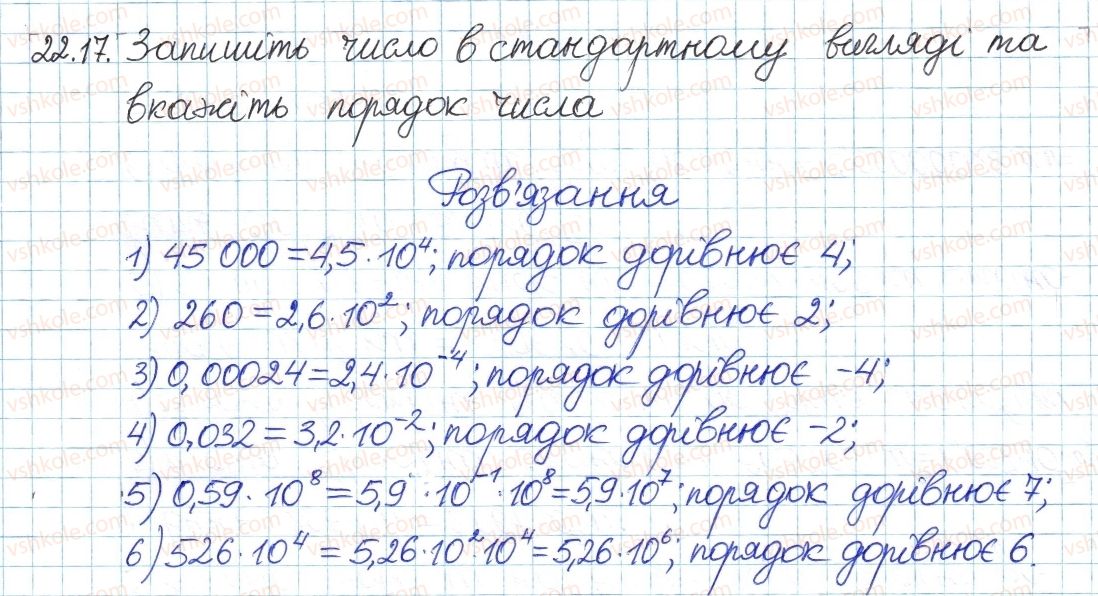 22.17. Запишіть число в стандартному вигляді та
вкажіть порядок числа
Розв'язання
1) 45 000 = 4,5 · 10⁴; порядок дорівнює 4;
2) 260 = 2,6 · 10²; порядок дорівнює 2;
3) 0,00024 = 2,4 · 10⁻⁴; порядок дорівнює -4;
4) 0,032 = 3,2 · 10⁻²; порядок дорівнює -2;
5) 0,59 · 10⁸ = 5,9 · 10⁻¹ · 10⁸ = 5,9 · 10⁷; порядок дорівнює 7;
6) 526 · 10⁴ = 5,26 · 10² 10⁴ = 5,26 · 10⁶; порядок дорівнює 6.